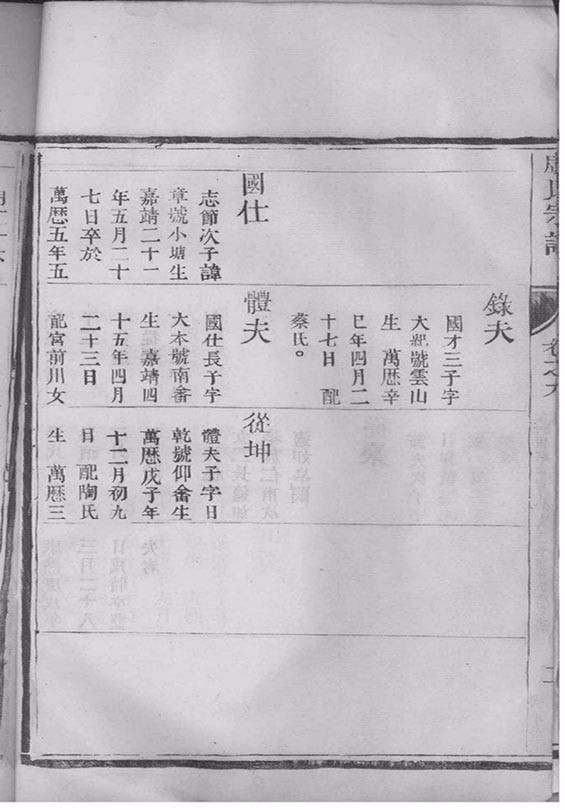 氏宗譜
卷之九
二
國仕
志節次子諱
章號小塘生
嘉靖二十一
年五月二十
七日卒於
萬曆五年五
錄夫
國才三子字
大紀號雲山
生 萬曆辛
巳年四月二
十七日 配
蔡氏。
體夫
國仕長子字
大本號南畬
生 嘉靖四
十五年四月
二十三日
配宮前川女
從坤
體夫子字日
乾號仰畬生
萬曆戊子年
十二月初九
日 配陶氏
生 萬曆三